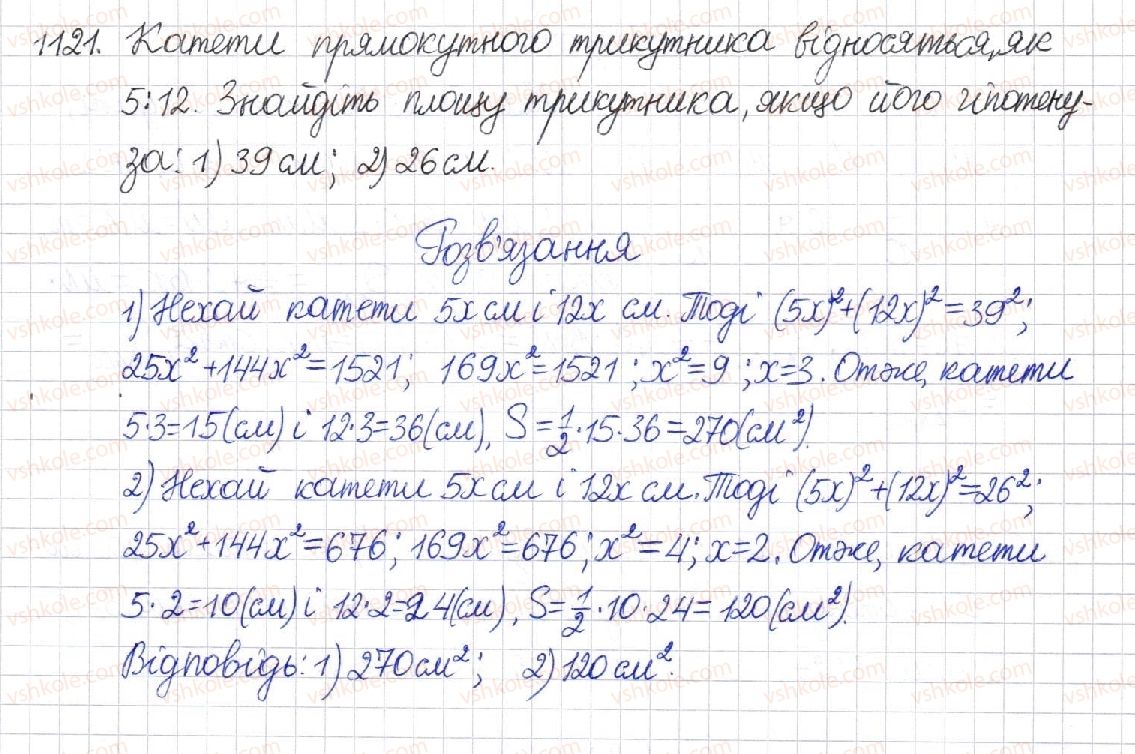 1121. Катети прямокутного трикутника відносяться, як
5:12. Знайдіть площу трикутника, якщо його гіпотену-
за: 1) 39 см; 2) 26 см.
Розв'язання
1) Нехай катети 5x см і 12x см. Тоді (5x)²+(12x)²=39²;
25x²+144x²=1521; 169x²=1521; x²=9; x=3. Отже, катети
5·3=15(см) і 12·3=36(см), S=1/2·15·36=270(см²).
2) Нехай катети 5x см і 12x см. Тоді (5x)²+(12x)²=26²;
25x²+144x²=676; 169x²=676; x²=4; x=2. Отже, катети
5·2=10(см) і 12·2=24(см), S=1/2·10·24=120(см²).
Відповідь: 1) 270 см²; 2) 120 см².
vshkole.com